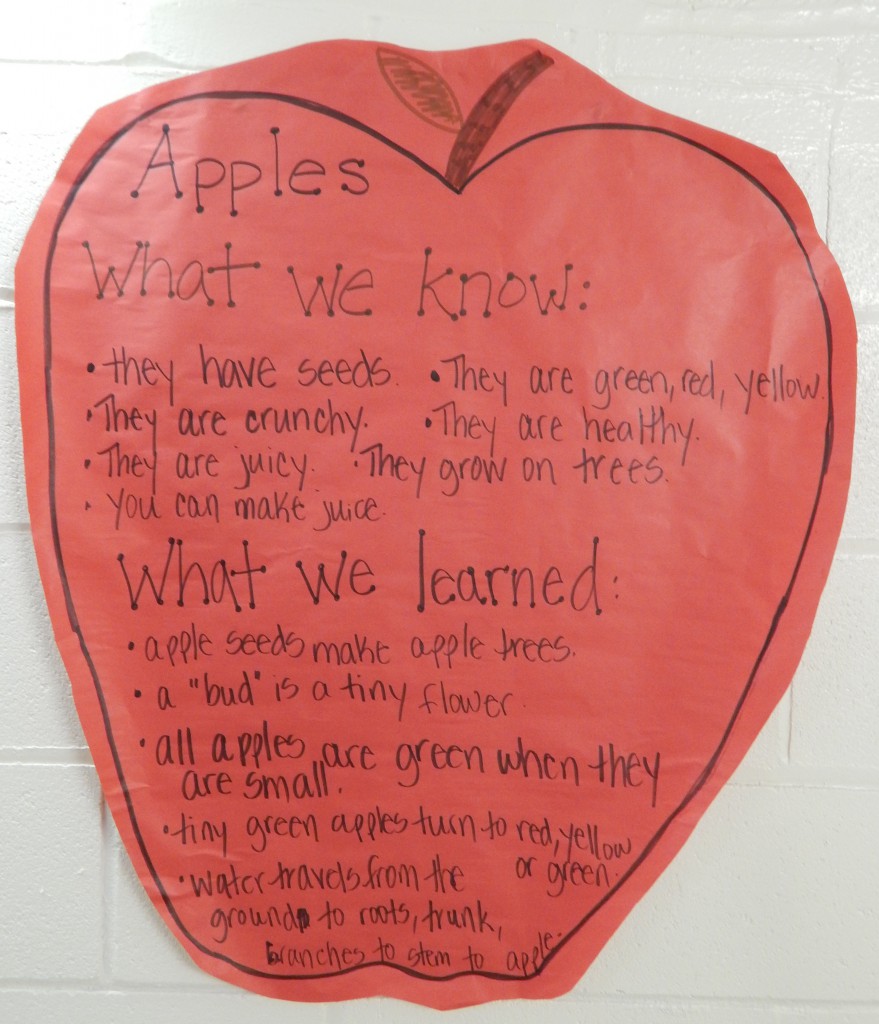 Apples
What we know:
• they have seeds. • They are green, red, yellow.
• They are crunchy. • They are healthy.
• They are juicy. • They grow on trees.
• you can make juice.
What we learned:
• apple seeds make apple trees.
• a "bud" is a tiny flower.
• all apples are green when they
are small.
• tiny green apples turn to red, yellow
or green.
• water travels from the
ground to roots, trunk,
branches to stem to apple.